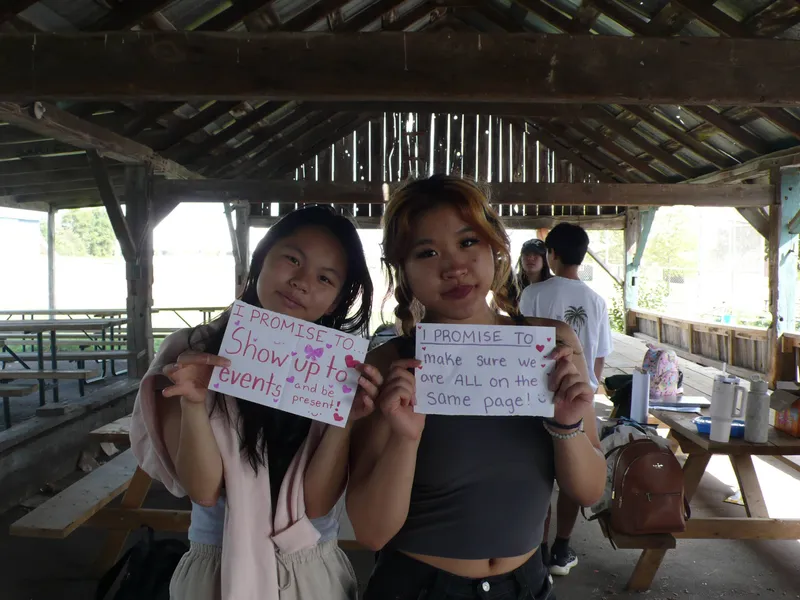 I PROMISE TO...
Show up to
events and be
present!
I PROMISE TO
make sure we
are ALL on the
same page!